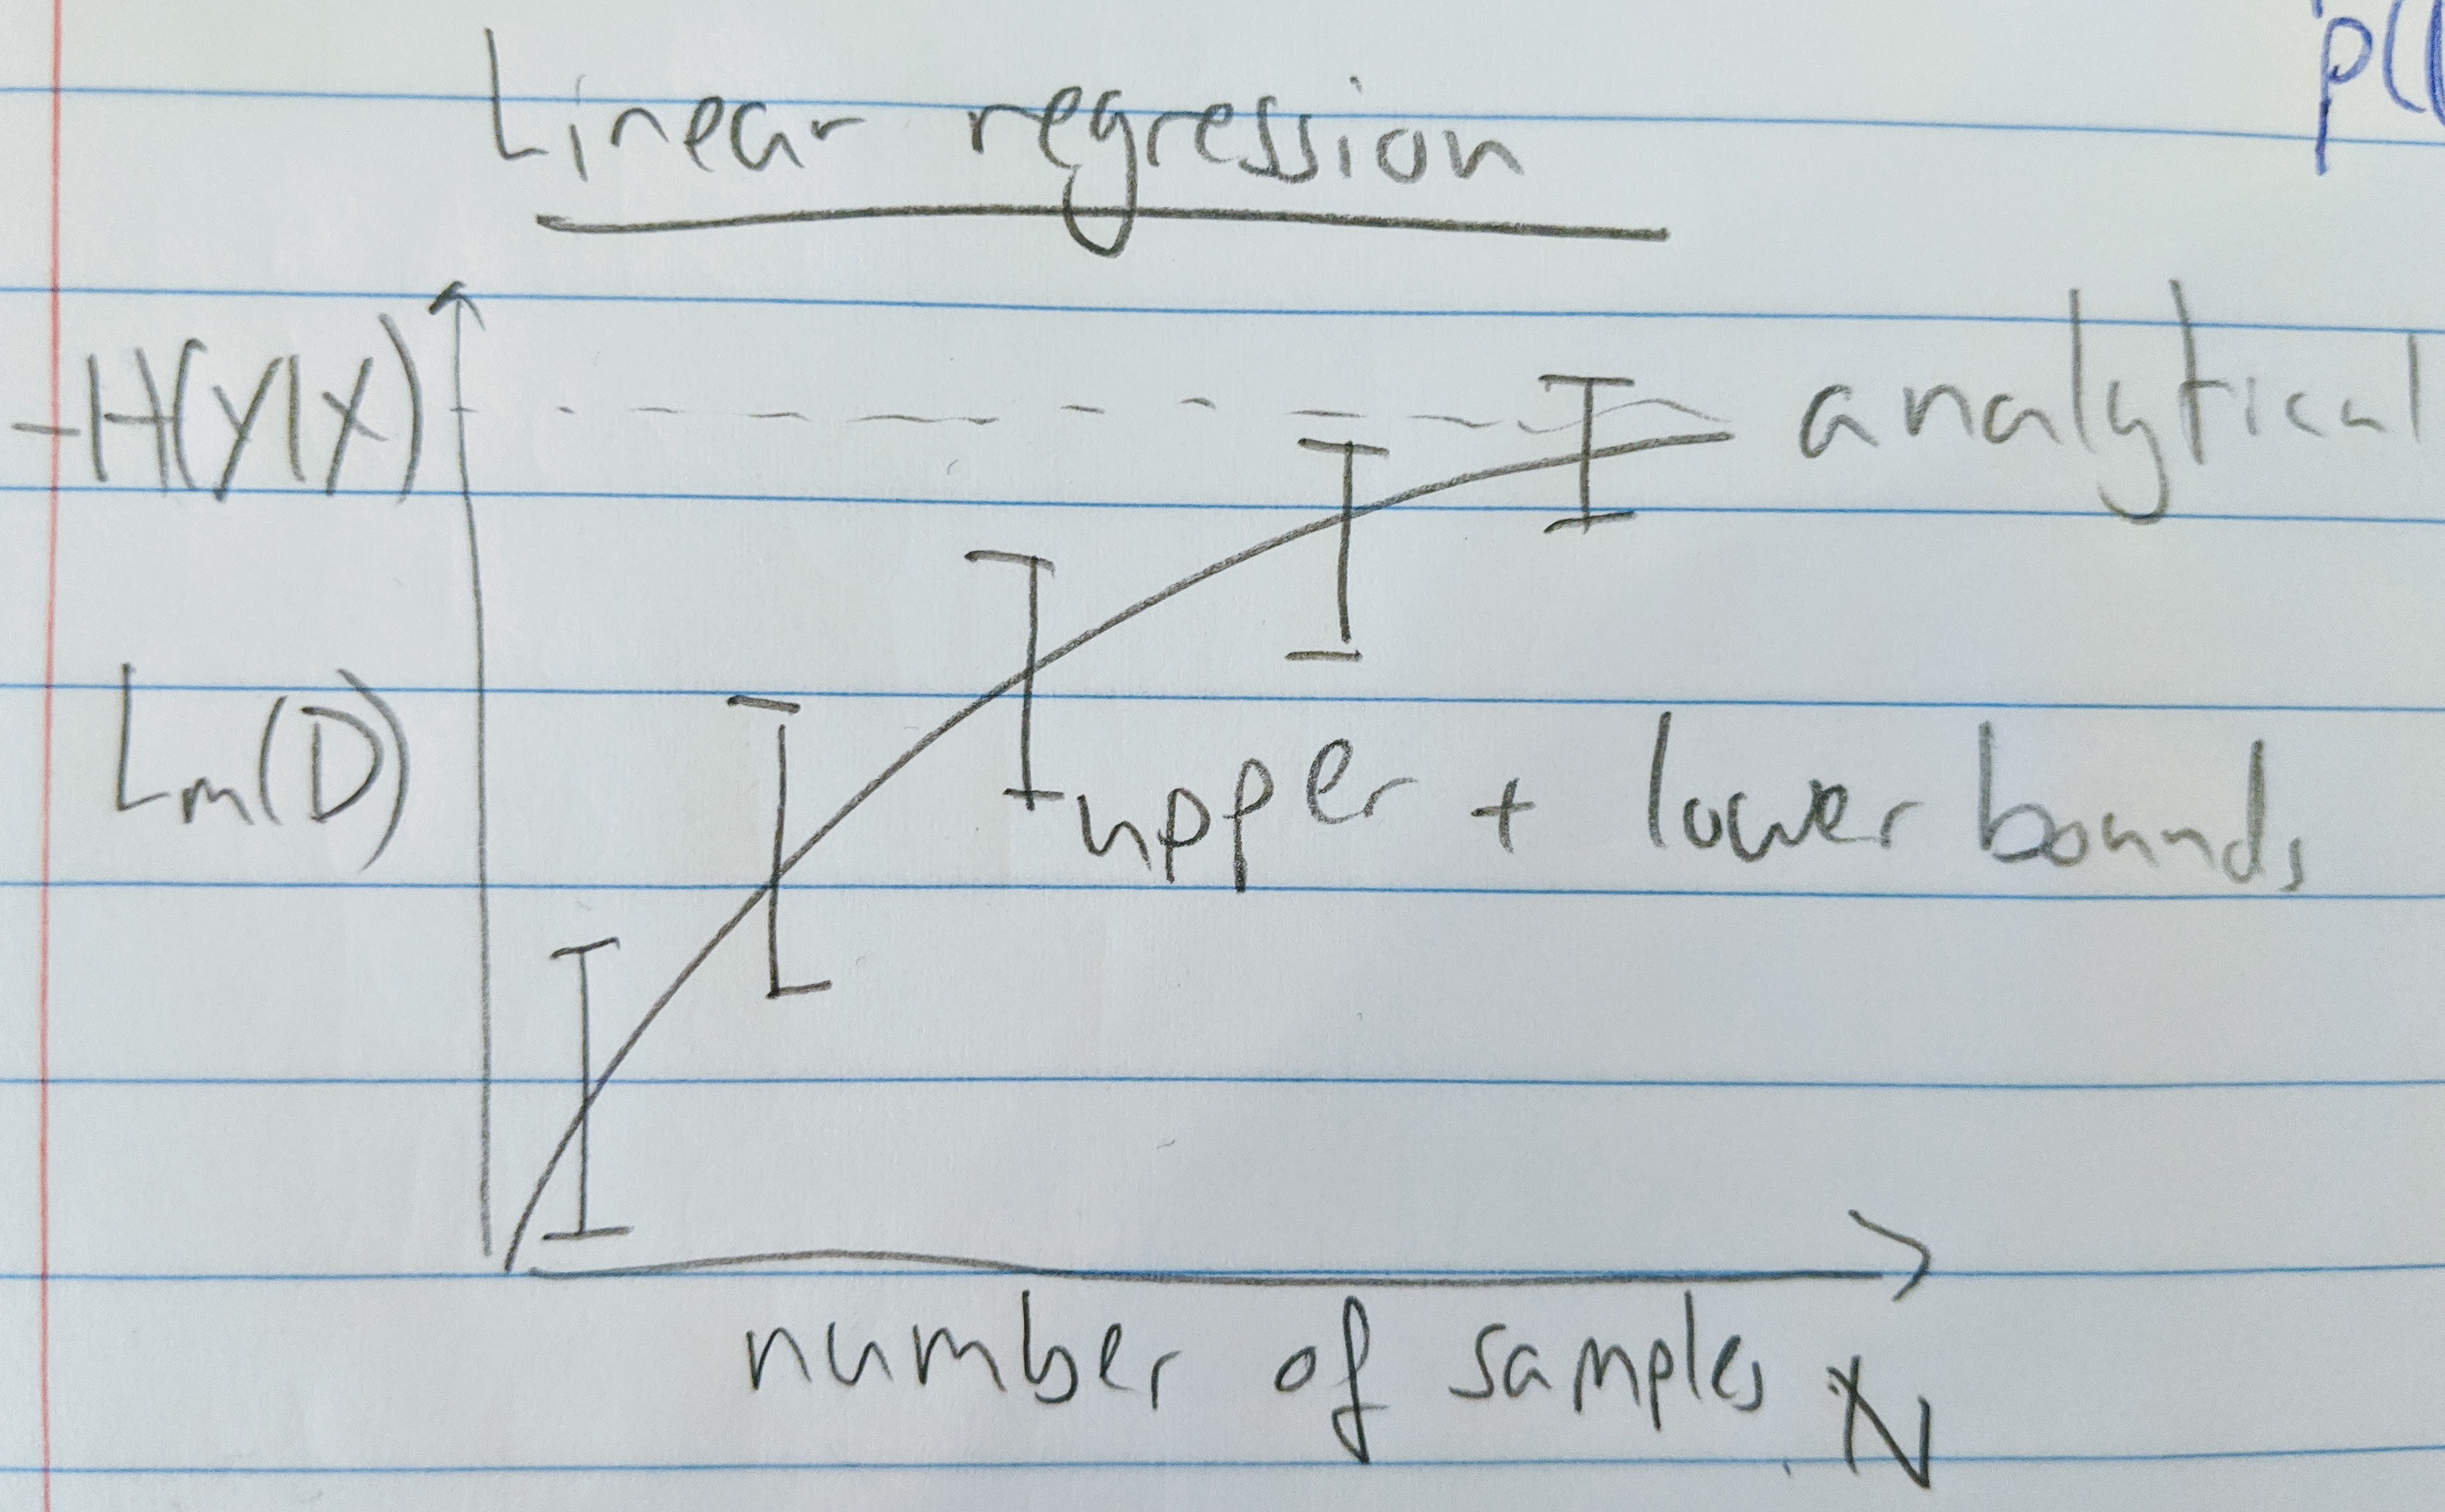 Linear regression
p(
-H(Y|X)
analytical
Lm(D)
upper + lower bounds
number of samples N